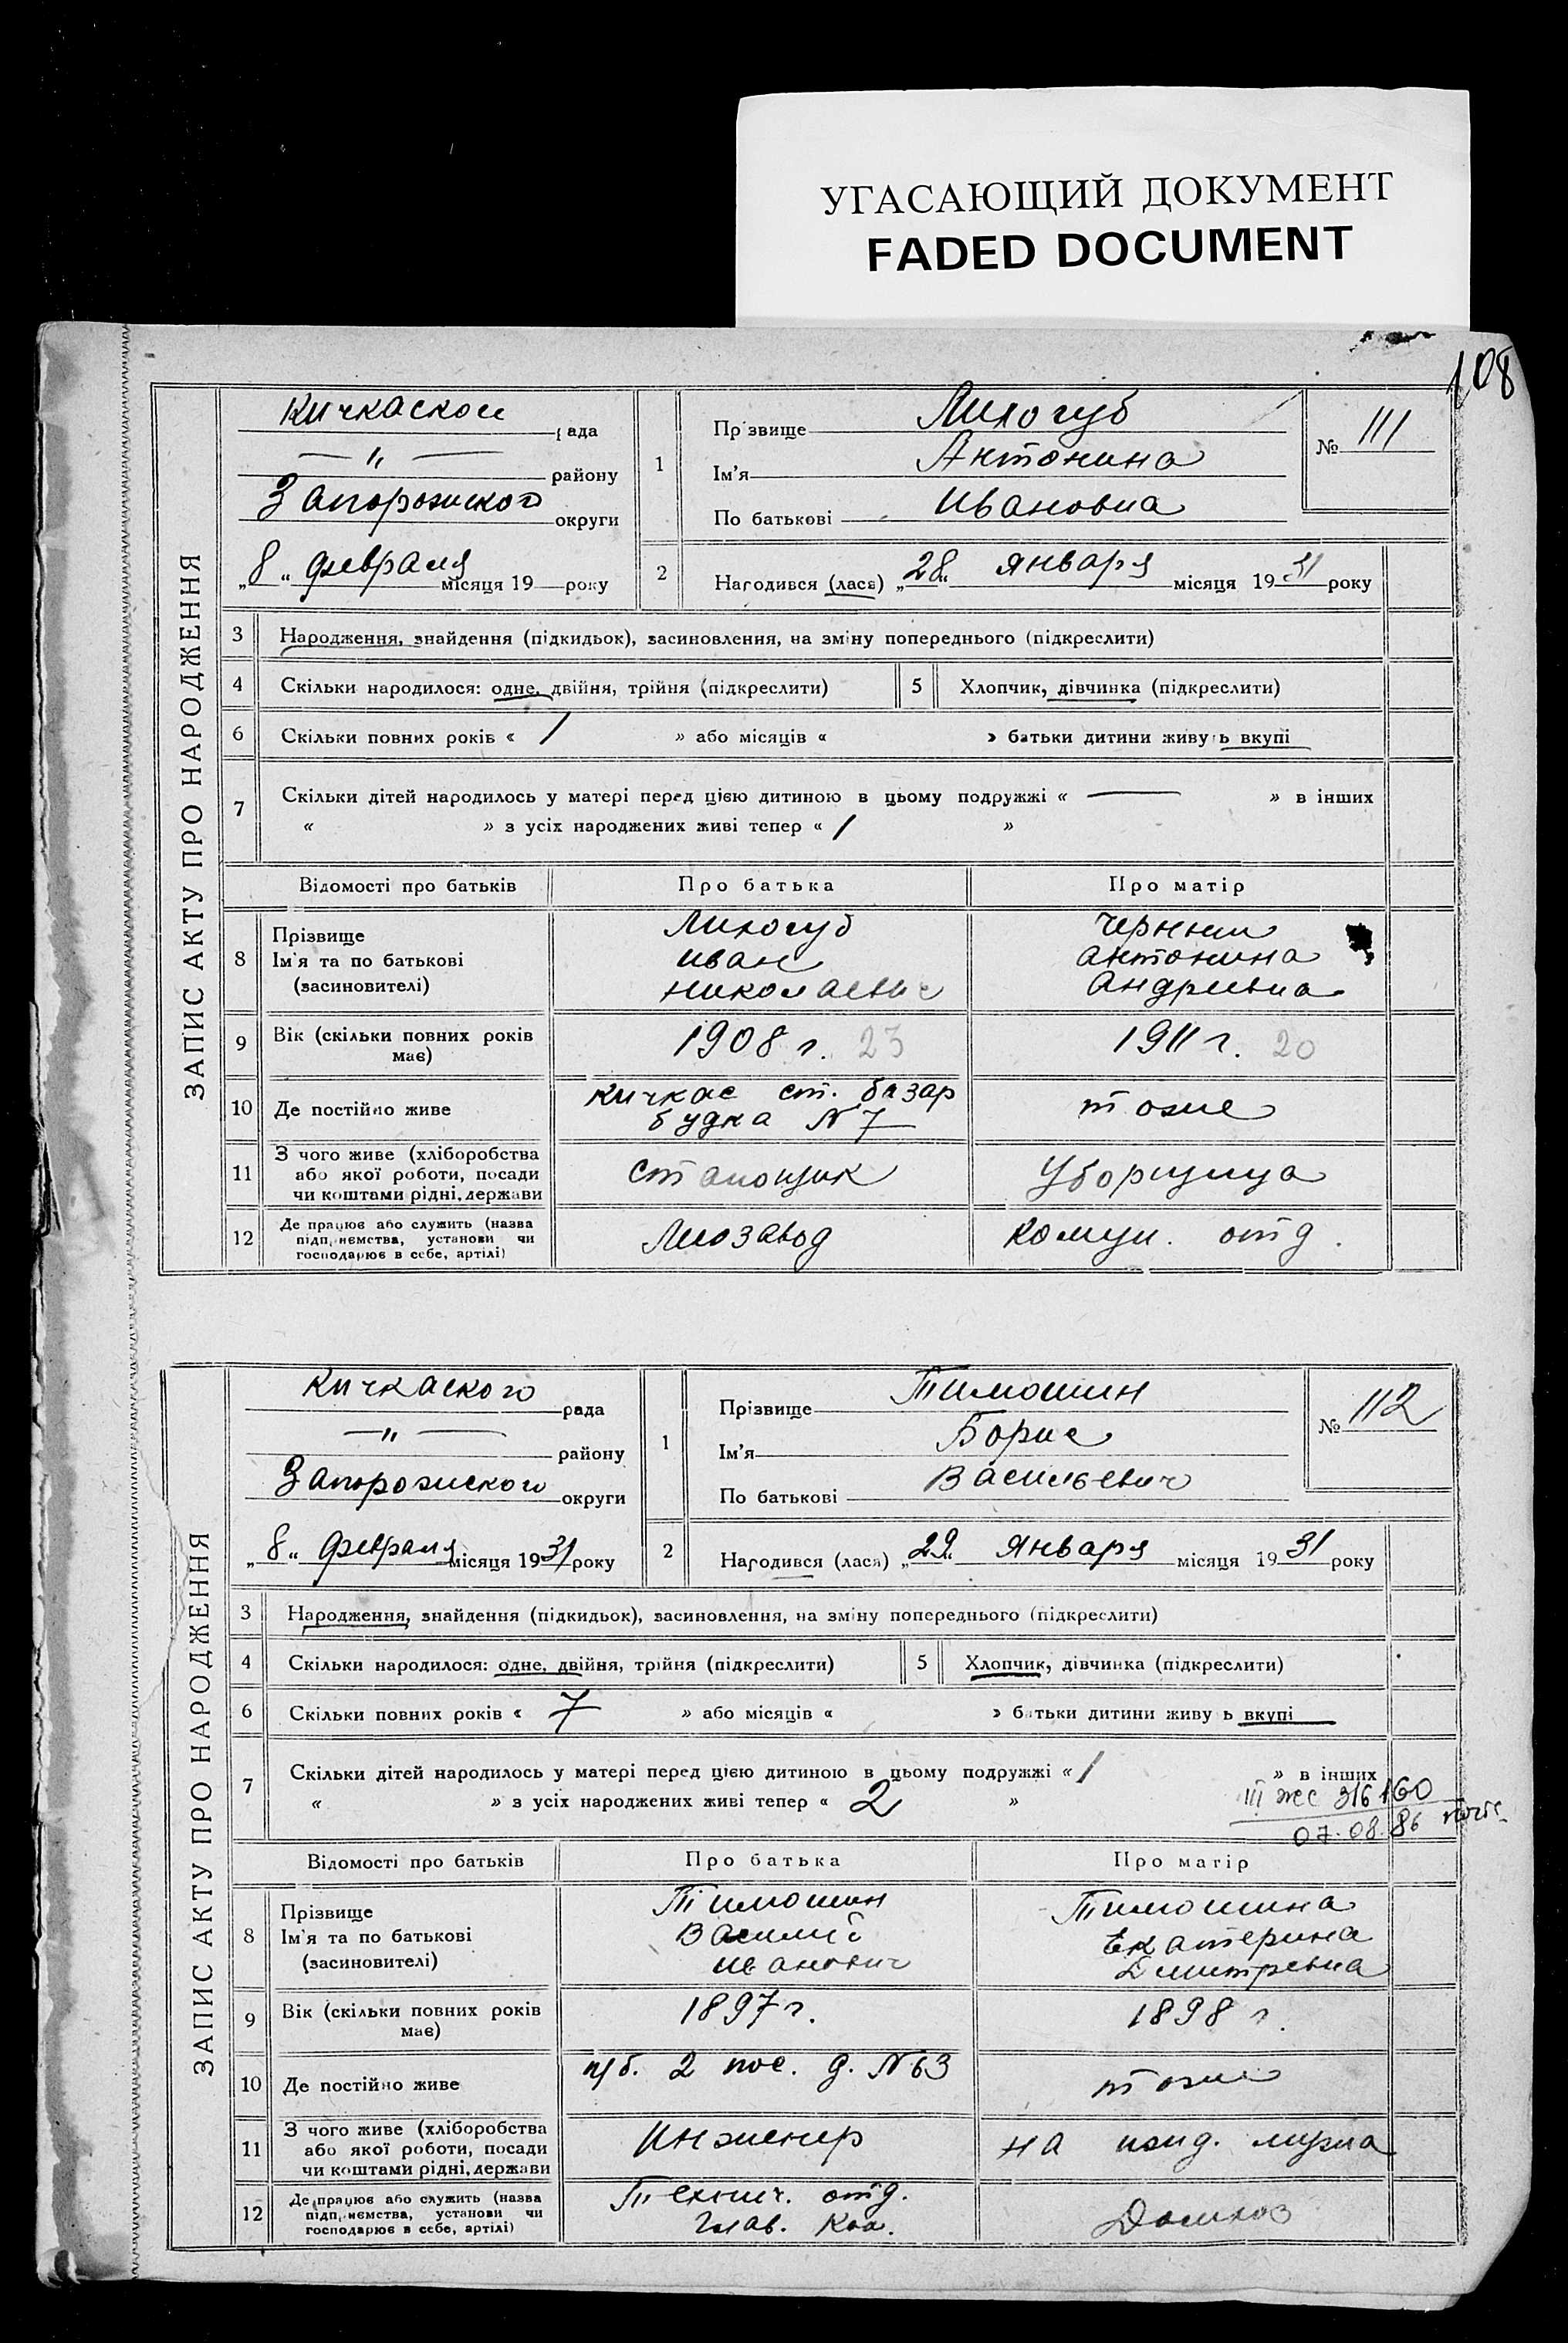 УГАСАЮЩИЙ ДОКУМЕНТ
FADED DOCUMENT
108
ЗАПИС АКТУ ПРО НАРОДЖЕННЯ
Кичкаской рада
— " — району
Запорожского округи
„8“ февраля місяця 19 року
1
Прізвище Лихогуб
Ім'я Антонина
По батькові Ивановна
№ 111
2 Народився (лася) „28“ января місяця 1931 року
3 Народження, знайдення (підкидьок), засиновлення, на зміну попереднього (підкреслити)
4 Скільки народилося: одне, двійня, трійня (підкреслити) 5 Хлопчик, дівчинка (підкреслити)
6 Скільки повних років « 1 » або місяців « » батьки дитини живуть вкупі
7 Скільки дітей народилось у матері перед цією дитиною в цьому подружжі « — » в інших
« » з усіх народжених живі тепер « 1 »
Відомості про батьків Про батька Про матір
8 Прізвище Лихогуб
Ім'я та по батькові Иван Антонина
(засиновителі) Николаевич Андреевна
9 Вік (скільки повних років має) 1908 г. 23 1911 г. 20
10 Де постійно живе Кичкас ст. базар тоже
будка N 7
11 З чого живе (хліборобства
або якої роботи, посади Уборщица
чи коштами рідні, держави
12 Де працює або служить (назва
підприємства, установи чи комун. отд.
господарює в себе, артілі)
ЗАПИС АКТУ ПРО НАРОДЖЕННЯ
Кичкаского рада
— " — району
Запорожского округи
„8“ февраля місяця 1931 року
1
Прізвище Тимошин
Ім'я Борис
По батькові Васильевич
№ 112
2 Народився (лася) „29“ января місяця 1931 року
3 Народження, знайдення (підкидьок), засиновлення, на зміну попереднього (підкреслити)
4 Скільки народилося: одне, двійня, трійня (підкреслити) 5 Хлопчик, дівчинка (підкреслити)
6 Скільки повних років « 7 » або місяців « » батьки дитини живуть вкупі
7 Скільки дітей народилось у матері перед цією дитиною в цьому подружжі « 1 » в інших
« » з усіх народжених живі тепер « 2 »
III жс 316160
07.08.86
Відомості про батьків Про батька Про матір
8 Прізвище Тимошин Тимошина
Ім'я та по батькові Василий Екатерина
(засиновителі) Иванович Дмитревна
9 Вік (скільки повних років має) 1897 г. 1898 г.
10 Де постійно живе п/б. 2 пос. д. N 63 тоже
11 З чого живе (хліборобства
або якої роботи, посади Инженер на ижд. мужа
чи коштами рідні, держави
12 Де працює або служить (назва Технич. отд.
підприємства, установи чи Глав.
господарює в себе, артілі) Домхоз